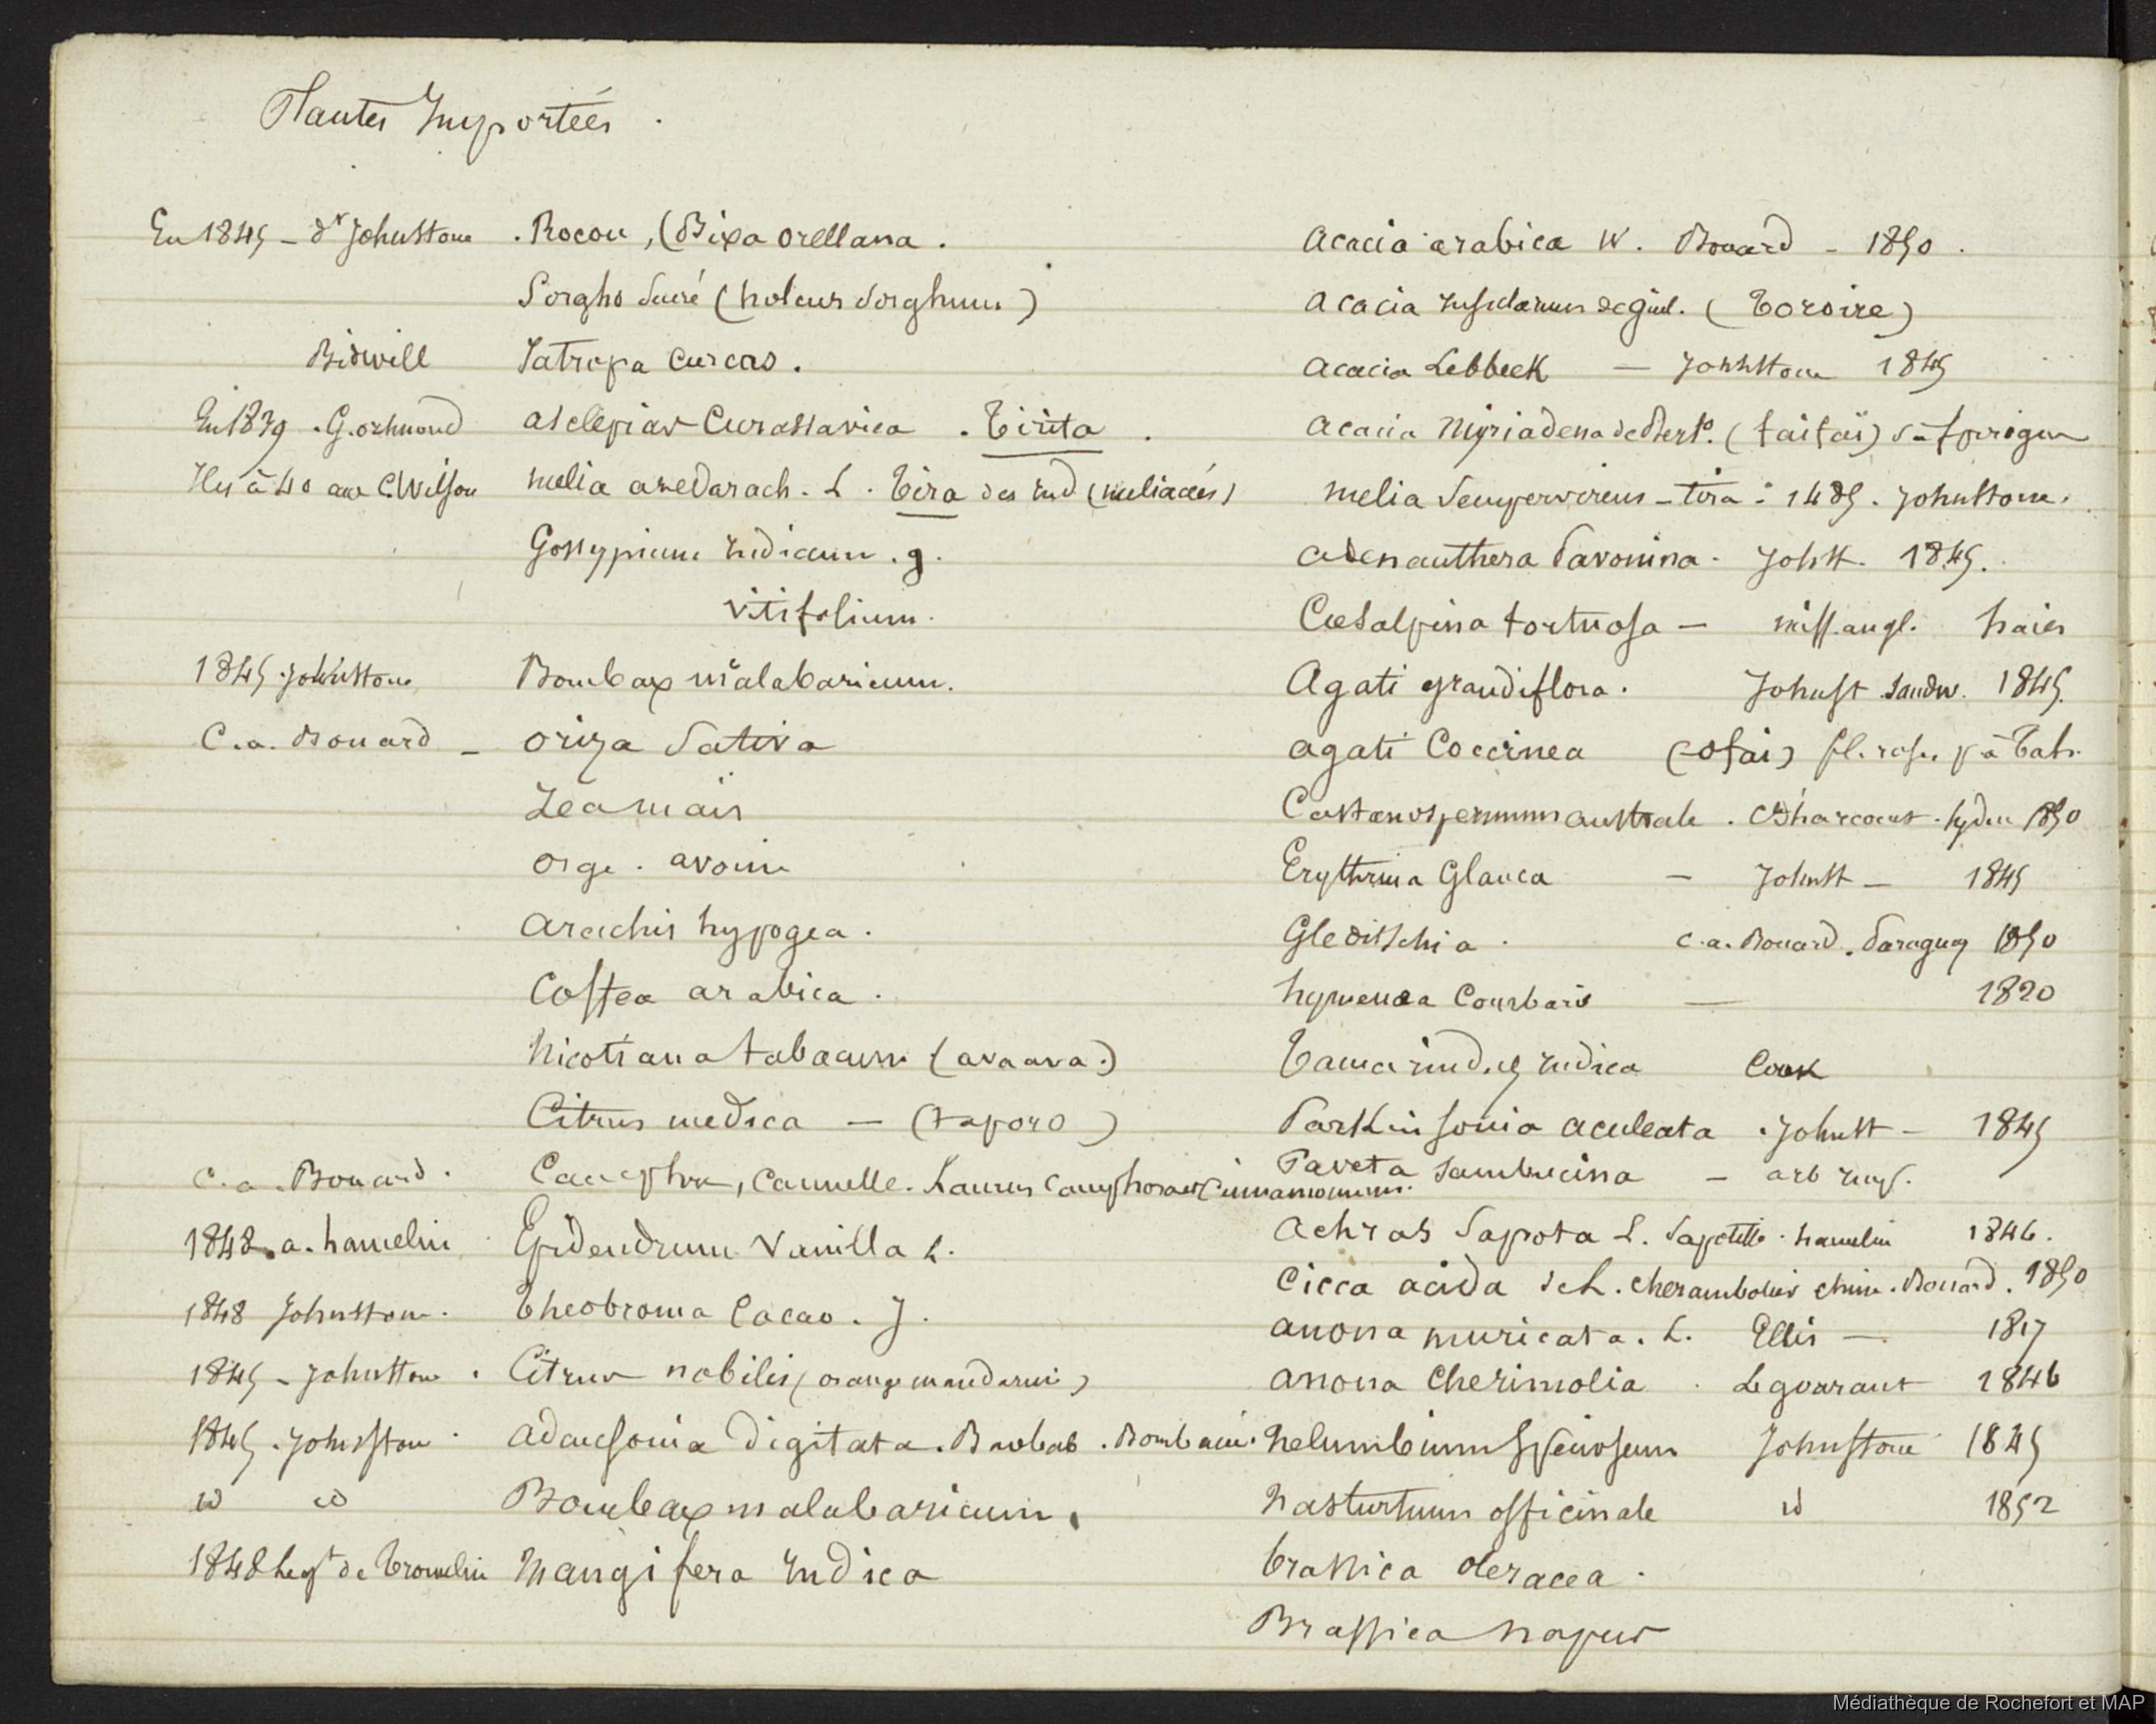 Plantes Importées.
En 1845 - dr Johnstone . Rocou, (Bixa orellana.
Sorgho sucré (holcus sorghum)
Bidwill Jatropa curcas.
En 1839 . G. orhmond asclepias Curassavica . Tirita .
C. Wilson melia azedarach. L. Tira des ind (meliacées)
Gossypium indicum . g.
vitifolium.
1845 Johnstone Bombax malabaricum.
C. a. Bonard - oriza Sativa
Zea maïs
orge . avoine
arachis hypogea.
Coffea arabica.
Nicotiana tabacum (avaava.)
Citrus medica — (taporo)
C. a. Bonard. Camphre, Cannelle. Laurus camphora et Cinnamomum.
1848. a. hamelin Epidendrum Vanilla L.
1848 Johnstone. Theobroma Cacao. J.
1845 - Johnstone . Citrus nobilis (orange mandarine)
1845 . Johnstone . adansonia digitata. Baobab .
id id Bombax malabaricum.
1848 de Tromelin Mangifera indica
acacia arabica W. Bonard - 1850.
acacia (Toroire)
acacia Lebbeck — Johnstone 1845
acacia Myriadena de Berto. (faifaï)
melia Sempervirens - tira - 1485. Johnstone.
adenanthera Pavonina - Johst. 1845.
Cæsalpina tortuosa — miss. angl. haies
Agati grandiflora. Johnst Sandw. 1845.
agati Coccinea (ofai) fl. rose
Castanospermum australe . Sydn 1850
Erythrina Glauca — Johnst — 1845
Gleditschia . c. a. Bonard. Paraguay 1850
hymenæa Courbaris — 1820
Tamarindus indica Cook
Parkinsonia aculeata . Johnst — 1845
Paveta Sambucina — arb
achras Sapota L. Sapotille . hamelin 1846.
Cicca acida chine . Bonard . 1850
anona muricata. L. Ellis — 1817
anona Cherimolia . Legoarant 1846
nelumbium Speciosum Johnstone 1845
nasturtium officinale id 1852
brassica oleracea.
Brassica napus
Médiathèque de Rochefort et MAP